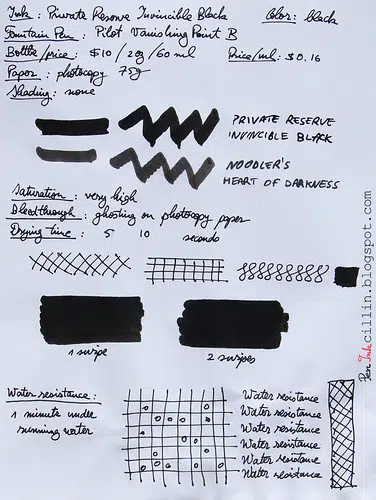 Ink: Private Reserve Invincible Black Color: black
Fountain Pen: Pilot Vanishing Point B
Bottle/price: $10 / 20g/60 ml Price/ml: $0.16
Paper: photocopy 75g
Shading: none
PRIVATE RESERVE
INVINCIBLE BLACK
NOODLER'S
HEART OF DARKNESS
Saturation: very high
Bleedthrough: ghosting on photocopy paper
Drying time: 5 10 seconds
1 swipe 2 swipes
Water resistance:
1 minute under
running water
Water resistance
Water resistance
Water resistance
Water resistance
Water resistance
Water resistance
Pen Ink cillin.blogspot.com